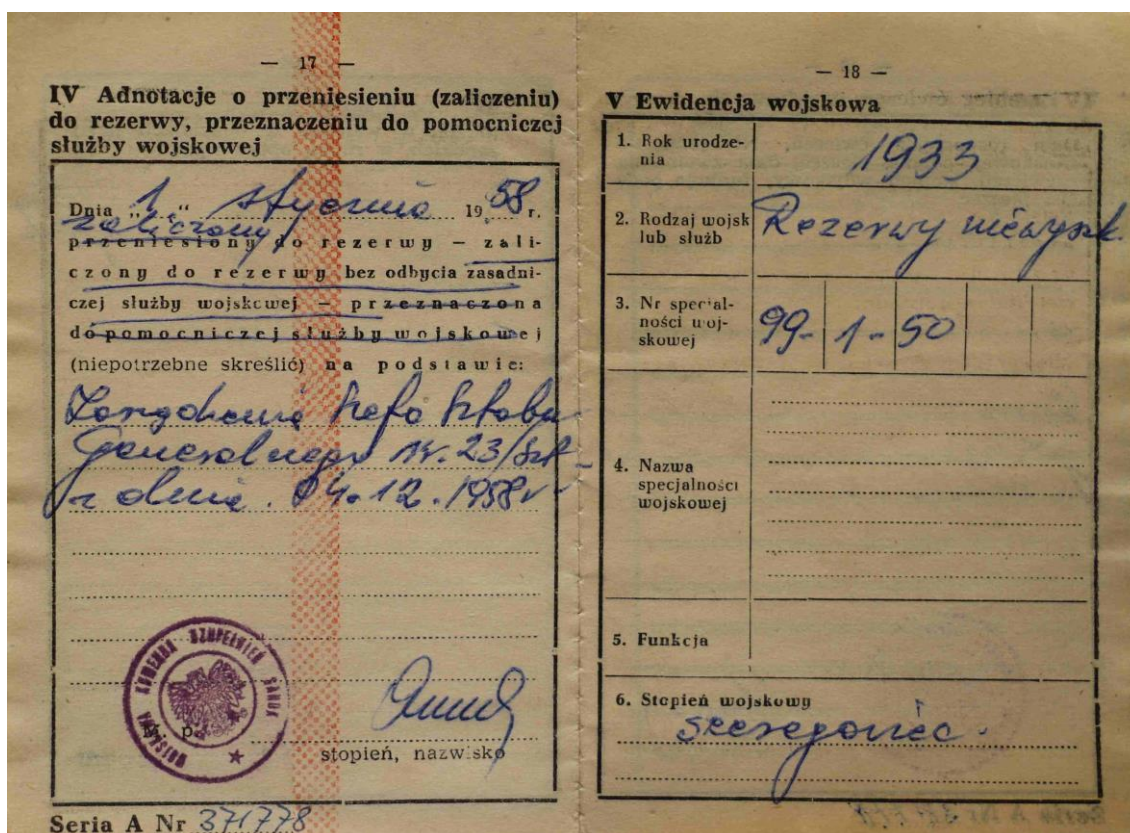 — 17 —
IV Adnotacje o przeniesieniu (zaliczeniu)
do rezerwy, przeznaczeniu do pomocniczej
służby wojskowej
Dnia „1.” stycznia 1958 r.
zaliczony
przeniesiony do rezerwy — zali-
czony do rezerwy bez odbycia zasadni-
czej służby wojskowej — przeznaczona
do pomocniczej służby wojskowej
(niepotrzebne skreślić) na podstawie:
Zarządzenia Szefa Sztabu
Generalnego nr. 23/Szt
z dnia. 04.12.1958r
WOJSKOWA KOMENDA UZUPEŁNIEŃ SANOK
M. p.
stopień, nazwisko
Seria A Nr 371778
— 18 —
V Ewidencja wojskowa
1. Rok urodze-
nia
1933
2. Rodzaj wojsk
lub służb
Rezerwy niewyszk.
3. Nr specjal-
ności woj-
skowej
99-1-50
4. Nazwa
specjalności
wojskowej
5. Funkcja
6. Stopień wojskowy
szeregowiec.